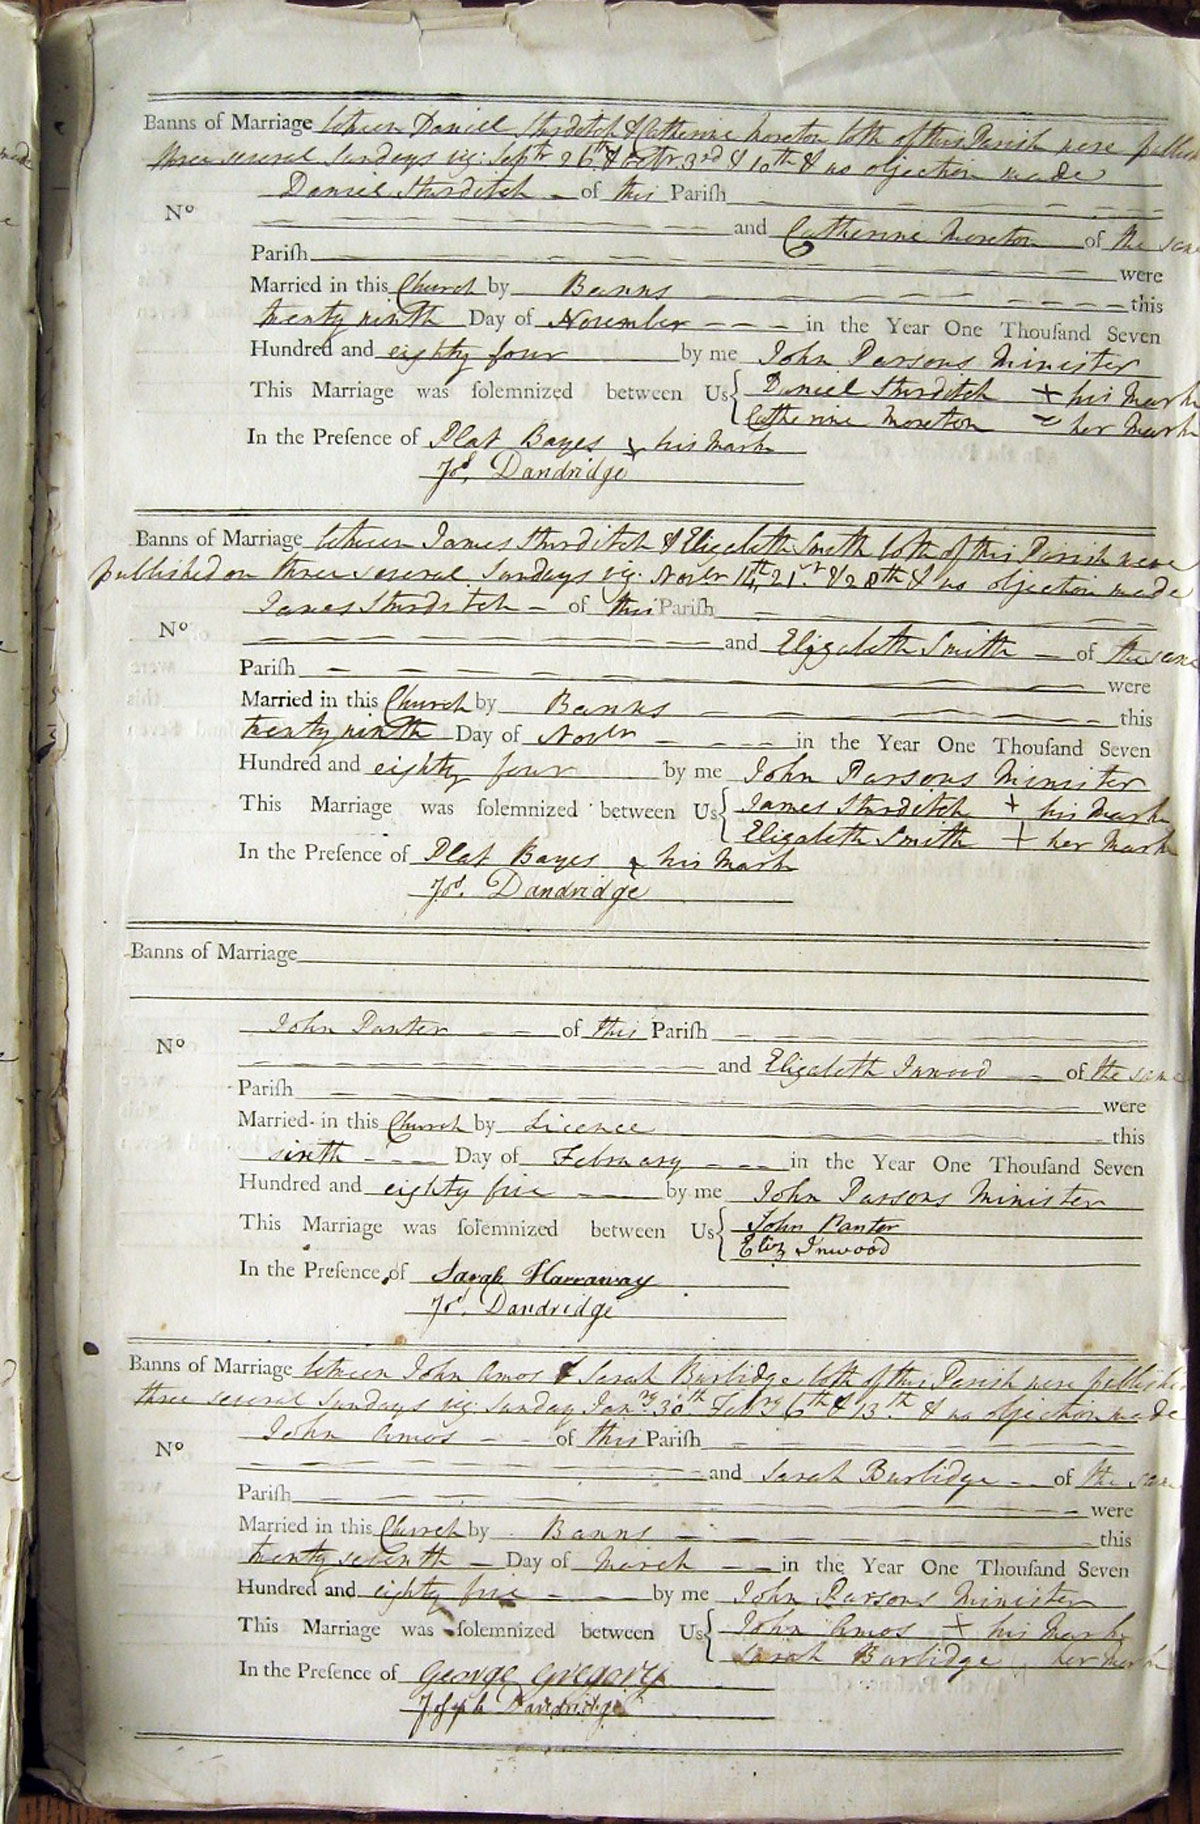 Banns of Marriage between Daniel Sturditch & Catherine Moreton both of this Parish were publish
three several Sundays viz: Septr 26th & Octr 3rd & 10th & no objection made
Daniel Sturditch of this Parish
No
and Catherine Moreton of the same
Pariſh were
Married in this Church by Banns this
twenty ninth Day of November in the Year One Thouſand Seven
Hundred and eighty four by me John Parsons Minister
This Marriage was ſolemnized between Us { Daniel Sturditch + his Mark
Catherine Moreton ~ her Mark
In the Preſence of Plat Bayes + his Mark
Jos. Dandridge
Banns of Marriage between James Sturditch & Elizabeth Smith both of this Parish were
published on three several Sundays viz: Novbr 14th, 21st & 28th & no objection made
James Sturditch of this Pariſh
No
and Elizabeth Smith of the same
Pariſh were
Married in this Church by Banns this
twenty ninth Day of Novbr in the Year One Thouſand Seven
Hundred and eighty four by me John Parsons Minister
This Marriage was ſolemnized between Us { James Sturditch + his Mark
Elizabeth Smith + her Mark
In the Preſence of Plat Bayes + his Mark
Jos. Dandridge
Banns of Marriage
John Panter of this Pariſh
No
and Elizabeth Inwood of the same
Pariſh were
Married in this Church by Licence this
sixth Day of February in the Year One Thouſand Seven
Hundred and eighty five by me John Parsons Minister
This Marriage was ſolemnized between Us { John Panter
Eliz Inwood
In the Preſence of Sarah Harraway
Jos. Dandridge
Banns of Marriage between John Amos & Sarah Burlidge both of this Parish were publishe
three several Sundays viz: Sunday Janry 30th Febry 6th & 13th & no objection made
John Amos of this Pariſh
No
and Sarah Burlidge of the same
Pariſh were
Married in this Church by Banns this
twenty seventh Day of March in the Year One Thouſand Seven
Hundred and eighty five by me John Parsons Minister
This Marriage was ſolemnized between Us { John Amos + his Mark
Sarah Burlidge her Mark
In the Preſence of George Gregory
Joseph Dandridge